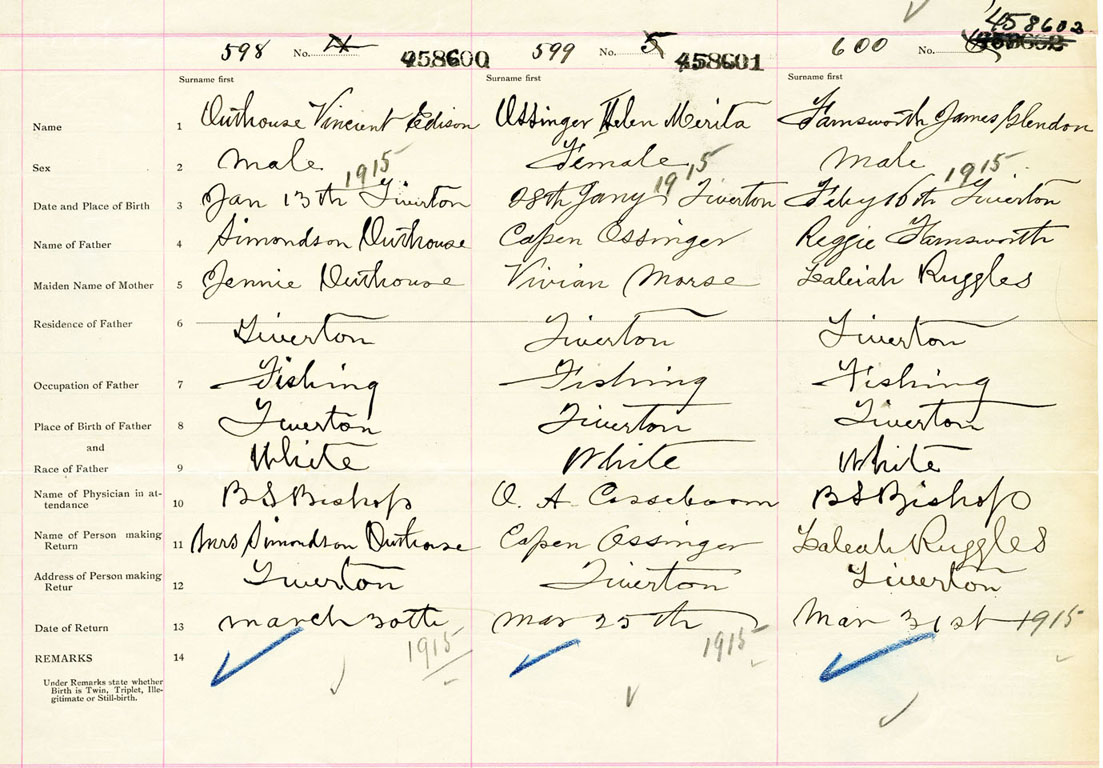 458603
598 No. 4 458600 599 No. 5 458601 600 No. 458602
Surname first Surname first Surname first
Name 1 Outhouse Vincient Edison Ossinger Helen Merita Farnsworth James Glendon
Sex 2 Male Female Male
1915 1915 1915
Date and Place of Birth 3 Jan 13th Tiverton 28th Jany Tiverton Feby 16th Tiverton
Name of Father 4 Simondson Outhouse Capen Ossinger Reggie Farnsworth
Maiden Name of Mother 5 Jennie Outhouse Vivian Morse Zaleiah Ruggles
Residence of Father 6 Tiverton Tiverton Tiverton
Occupation of Father 7 Fishing Fishing Fishing
Place of Birth of Father 8 Tiverton Tiverton Tiverton
and
Race of Father 9 White White White
Name of Physician in at-
tendance 10 B S Bishop O. A. Cosseboom B S Bishop
Name of Person making
Return 11 Mrs Simondson Outhouse Capen Ossinger Zaleah Ruggles
Address of Person making
Retur 12 Tiverton Tiverton Tiverton
Date of Return 13 March 30th Mar 25th Mar 31st 1915
1915 1915
REMARKS 14
Under Remarks state whether
Birth is Twin, Triplet, Ille-
gitimate or Still-birth.